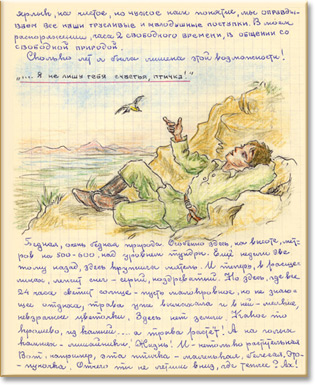 ярлык, на чистое, но чужое нам понятие, мы оправды-
ваем все наши трусливые и малодушные поступки. В моём
распоряжении, часа 2 свободного времени, в общении со
свободной природой.
Сколько лет я была лишена этой возможности!
"... Я не лиши тебя счастья, птичка!"
Бедная, очень бедная природа. Особенно здесь, на высоте, мет-
ров на 500-600, над уровнем тундры. Ещё недели две
тому назад, здесь кружила метель. И теперь, в расще-
линах, лежит снег - серый, ноздреватый. Но здесь, где все
24 часа светит солнце - пусть и холодное, но не знаю-
щее отдыха, трава уже и в ней - мелкие,
невзрачные цветочки. Здесь нет земли. Какое-то
крошево, из камней.... а трава растёт! А на голых
камнях - лишайники. Жизнь! И - не только растительная
Вот, например, эта птичка - маленькая, белесая,
Отчего ты не летишь вниз, где теплее? Ах!